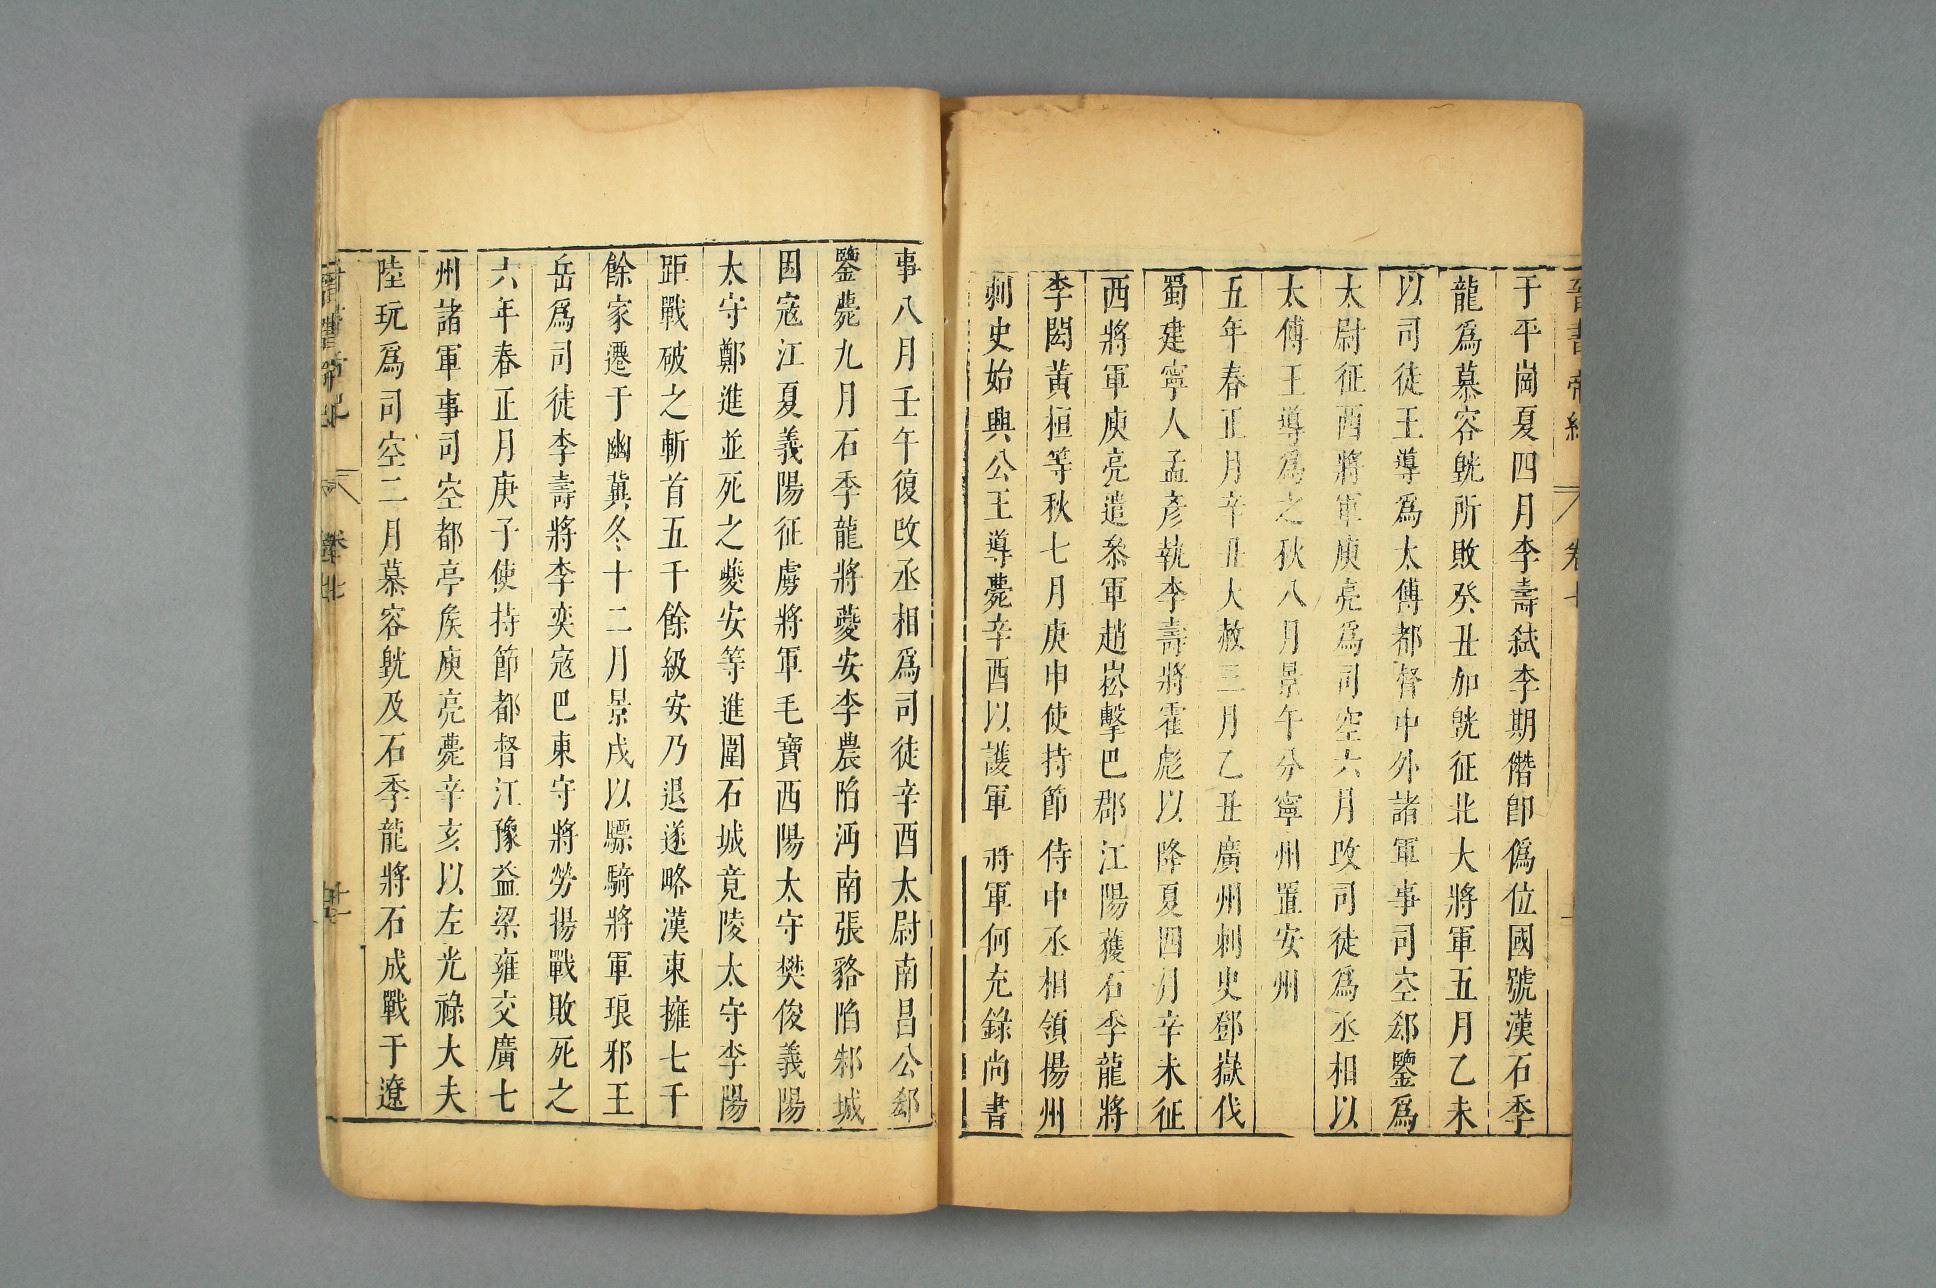 晉書帝紀 卷七
于平崗夏四月李壽弑李期僭卽僞位國號漢石季
龍爲慕容皝所敗癸丑加皝征北大將軍五月乙未
以司徒王導爲太傅都督中外諸軍事司空郄鑒爲
太尉征西將軍庾亮爲司空六月改司徒爲丞相以
太傅王導爲之秋八月景午分寧州置安州
五年春正月辛丑大赦三月乙丑廣州刺史鄧嶽伐
蜀建寧人孟彥執李壽將霍彪以降夏四月辛未征
西將軍庾亮遣叅軍趙崧擊巴郡江陽獲石季龍將
李閎黃桓等秋七月庚申使持節侍中丞相領揚州
刺史始興公王導薨辛酉以護軍將軍何充錄尚書
事八月壬午復改丞相爲司徒辛酉太尉南昌公郄
鑒薨九月石季龍將夔安李農陷沔南張貉陷邾城
因寇江夏義陽征虜將軍毛寶西陽太守樊俊義陽
太守鄭進並死之夔安等進圍石城竟陵太守李陽
距戰破之斬首五千餘級安乃退遂略漢東擁七千
餘家遷于幽冀冬十二月景戌以驃騎將軍琅邪王
岳爲司徒李壽將李奕寇巴東守將勞揚戰敗死之
六年春正月庚子使持節都督江豫益梁雍交廣七
州諸軍事司空都亭侯庾亮薨辛亥以左光祿大夫
陸玩爲司空二月慕容皝及石季龍將石成戰于遼